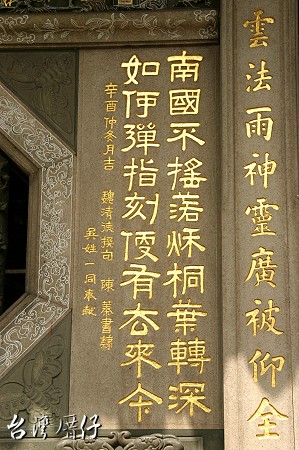 雲法雨神靈廣被仰全
南國不搖落秌桐葉轉深
如伊彈指刻便有去來今
辛酉仲冬月吉 魏清德撰句 陳 書隸
吳姓一同奉獻
台灣厝仔